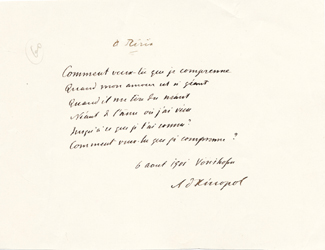 A Riri
Comment veux-tu que je comprenne
Quand mon amour est si géant
Quand il m'a tiré du néant
Néant de l'âme où j'ai vécu
Jusqu'à ce que je t'ai connu?
Comment veux-tu que je comprenne?
6 aout 1901